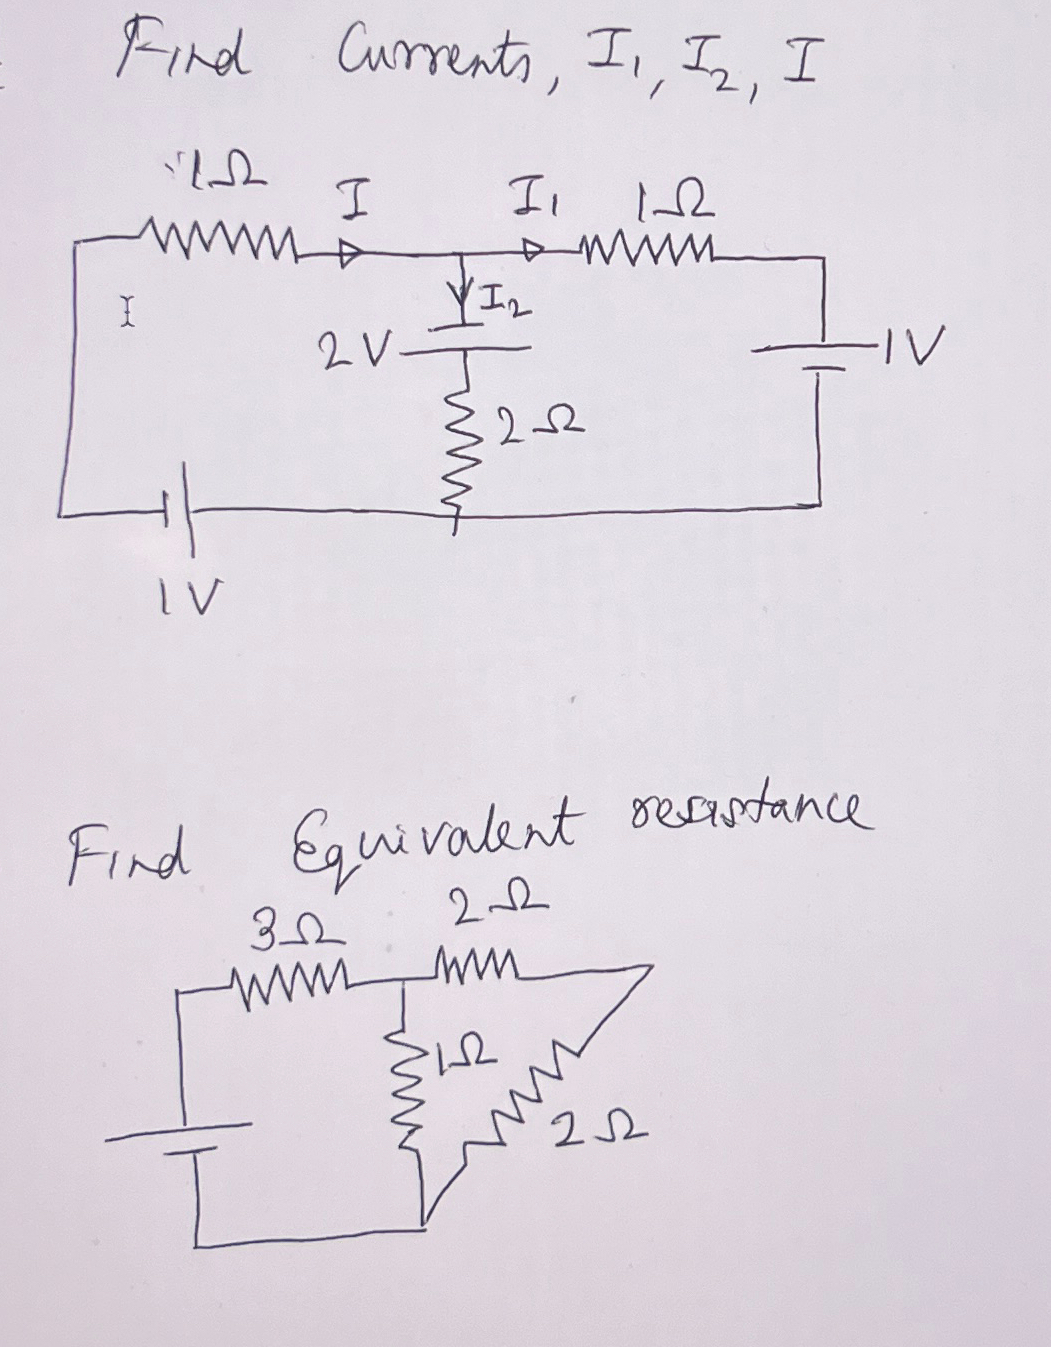 Find Currents, I₁, I₂, I
1Ω
I
I₁
1Ω
I₂
2V
1V
2Ω
1V
Find Equivalent resistance
3Ω
2Ω
1Ω
2Ω